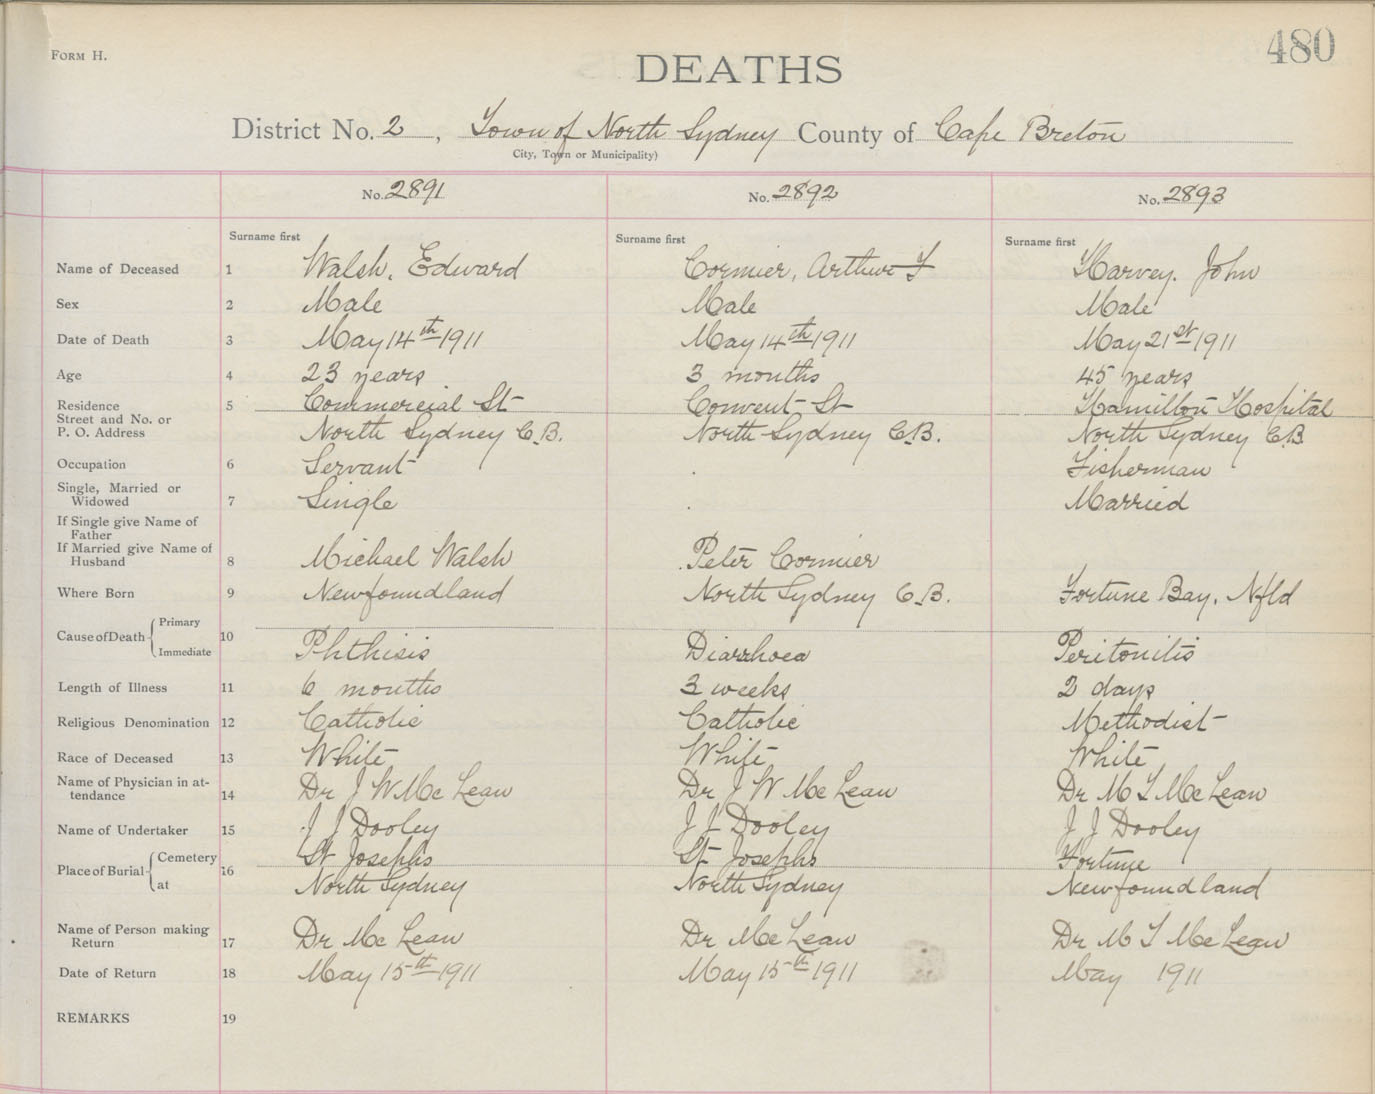 FORM H.
480
DEATHS
District No. 2, Town of North Sydney County of Cape Breton
City, Town or Municipality)
No. 2891 No. 2892 No. 2893
Surname first Surname first Surname first
Name of Deceased 1 Walsh, Edward Cormier, Arthur F Harvey. John
Sex 2 Male Male Male
Date of Death 3 May 14th 1911 May 14th 1911 May 21st 1911
Age 4 23 years 3 months 45 years
Residence 5 Commercial St Convent St Hamilton Hospital
Street and No. or
P. O. Address North Sydney C.B. North Sydney C.B. North Sydney C.B
Occupation 6 Servant Fisherman
Single, Married or
Widowed 7 Single Married
If Single give Name of
Father
If Married give Name of
Husband 8 Michael Walsh Peter Cormier
Where Born 9 Newfoundland North Sydney C.B. Fortune Bay, Nfld
Cause of Death Primary 10
Immediate Phthisis Diarrhoea Peritonitis
Length of Illness 11 6 months 3 weeks 2 days
Religious Denomination 12 Catholic Catholic Methodist
Race of Deceased 13 White White White
Name of Physician in at-
tendance 14 Dr J W McLean Dr J W McLean Dr M T McLean
Name of Undertaker 15 J J Dooley J J Dooley J J Dooley
Place of Burial Cemetery 16 St Josephs St Josephs Fortune
at North Sydney North Sydney Newfoundland
Name of Person making
Return 17 Dr McLean Dr McLean Dr M T McLean
Date of Return 18 May 15th 1911 May 15th 1911 May 1911
REMARKS 19